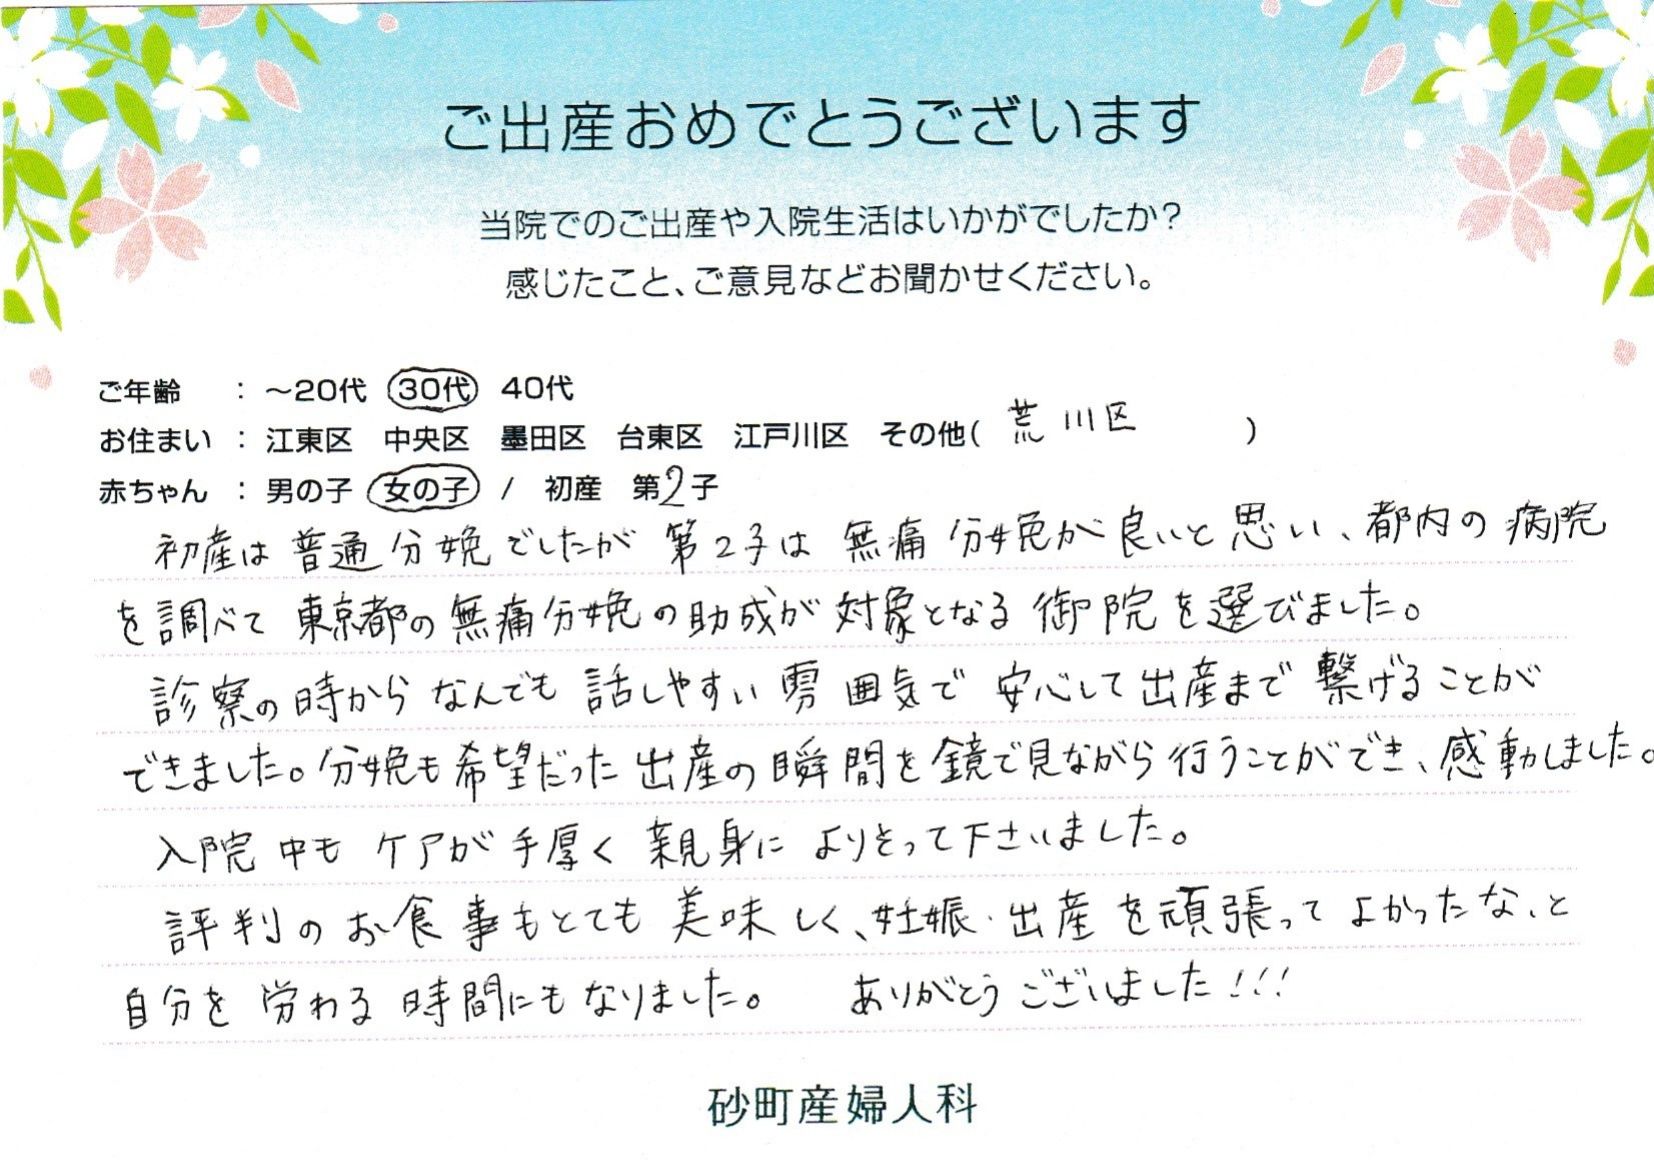 ご出産おめでとうございます
当院でのご出産や入院生活はいかがでしたか?
感じたこと、ご意見などお聞かせください。
ご年齢 : ～20代 30代 40代
お住まい : 江東区 中央区 墨田区 台東区 江戸川区 その他( 荒川区 )
赤ちゃん : 男の子 女の子 / 初産 第2子
初産は普通分娩でしたが第2子は無痛分娩が良いと思い、都内の病院
を調べて東京都の無痛分娩の助成が対象となる御院を選びました。
診察の時からなんでも話しやすい雰囲気で安心して出産まで繋げることが
できました。分娩も希望だった出産の瞬間を鏡で見ながら行うことができ、感動しました。
入院中もケアが手厚く親身によりそって下さいました。
評判のお食事もとても美味しく、妊娠・出産を頑張ってよかったな、と
自分を労わる時間にもなりました。 ありがとうございました!!!
砂町産婦人科